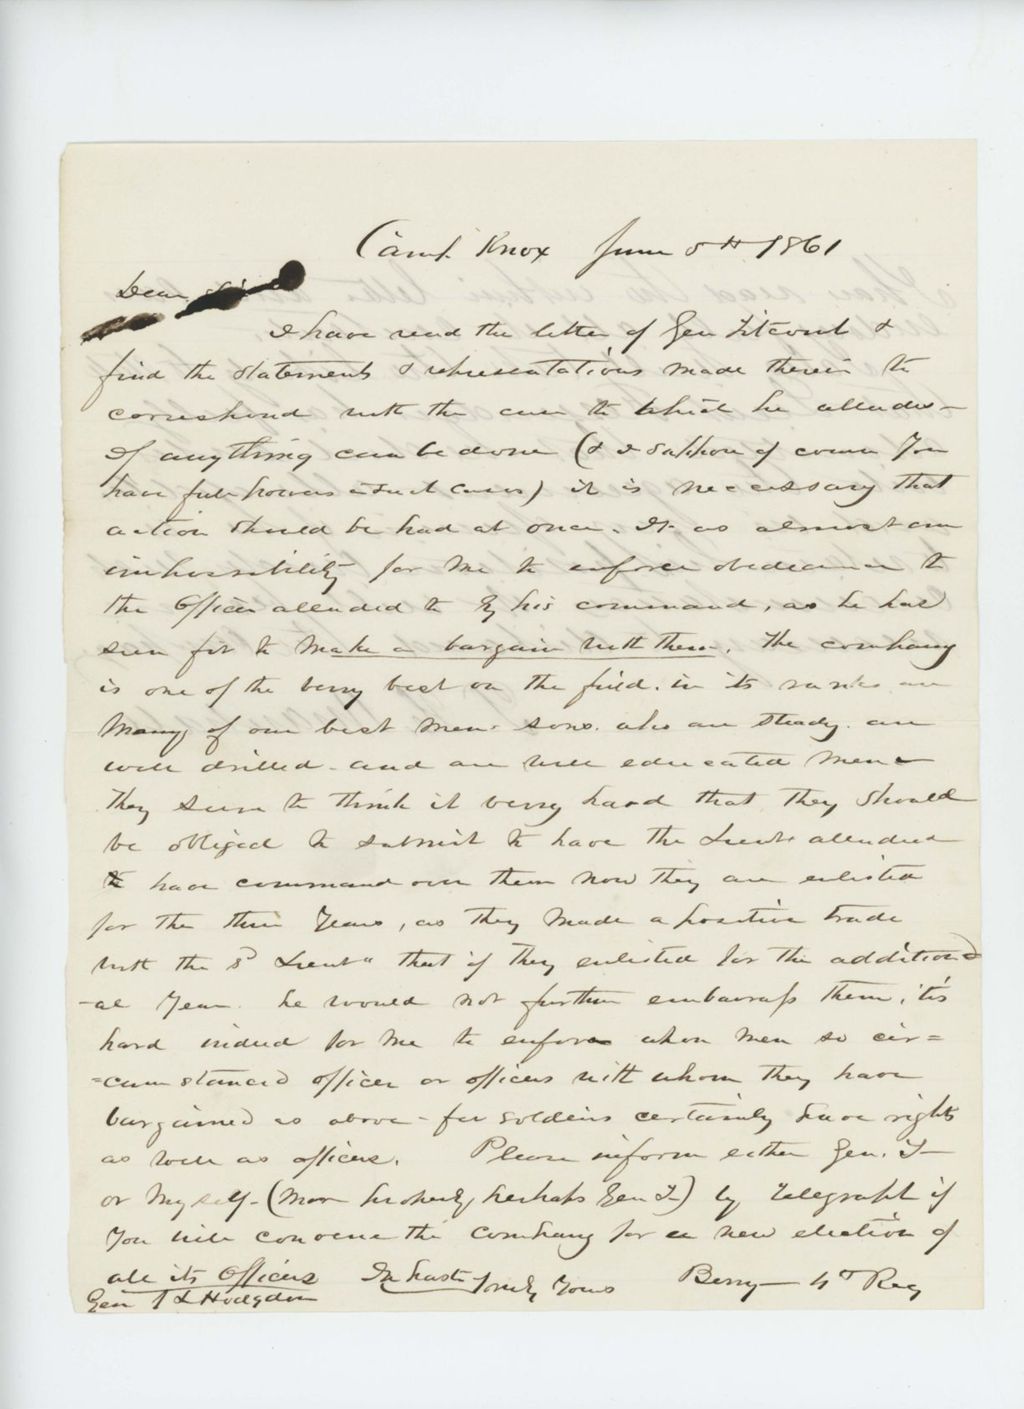 Camp Knox June 8th 1861
Dear Sir
I have read the letter of Gen Titcomb &
find the statements & representations made therein to
correspond with the case to which he alludes -
If anything can be done (& I suppose of course You
have full powers in such cases) it is neccessary that
action should be had at once. It is almost an
impossibility for me to enforce obedience to
the Officer alluded to by his command, as he has
seen fit to make a bargain with them. The company
is one of the berry best on the field. in its ranks are
many of our best mens sons. who are steady. are
well drilled - and are well educated men -
They seem to think it verry hard that they should
be obliged to submit to have the Lieut alluded
to have command over them now they are enlisted
for the three Years, as they made a positive trade
with the sd Lieut" that if they enlisted for the addition
-al Year he would not further embarrass them, 'tis
hard indeed for me to enforce upon men so cir=
=cumstanced officer or officers with whom they have
bargained as above - for soldiers certainly have rights
as well as officers. Please inform either Gen. T-
or myself - (more properly perhaps Gen T-) by Telegraph if
You will convene the company for a new election of
all its Officers In haste Truly Yours Berry - 4th Reg
Gen J L Hodgdon